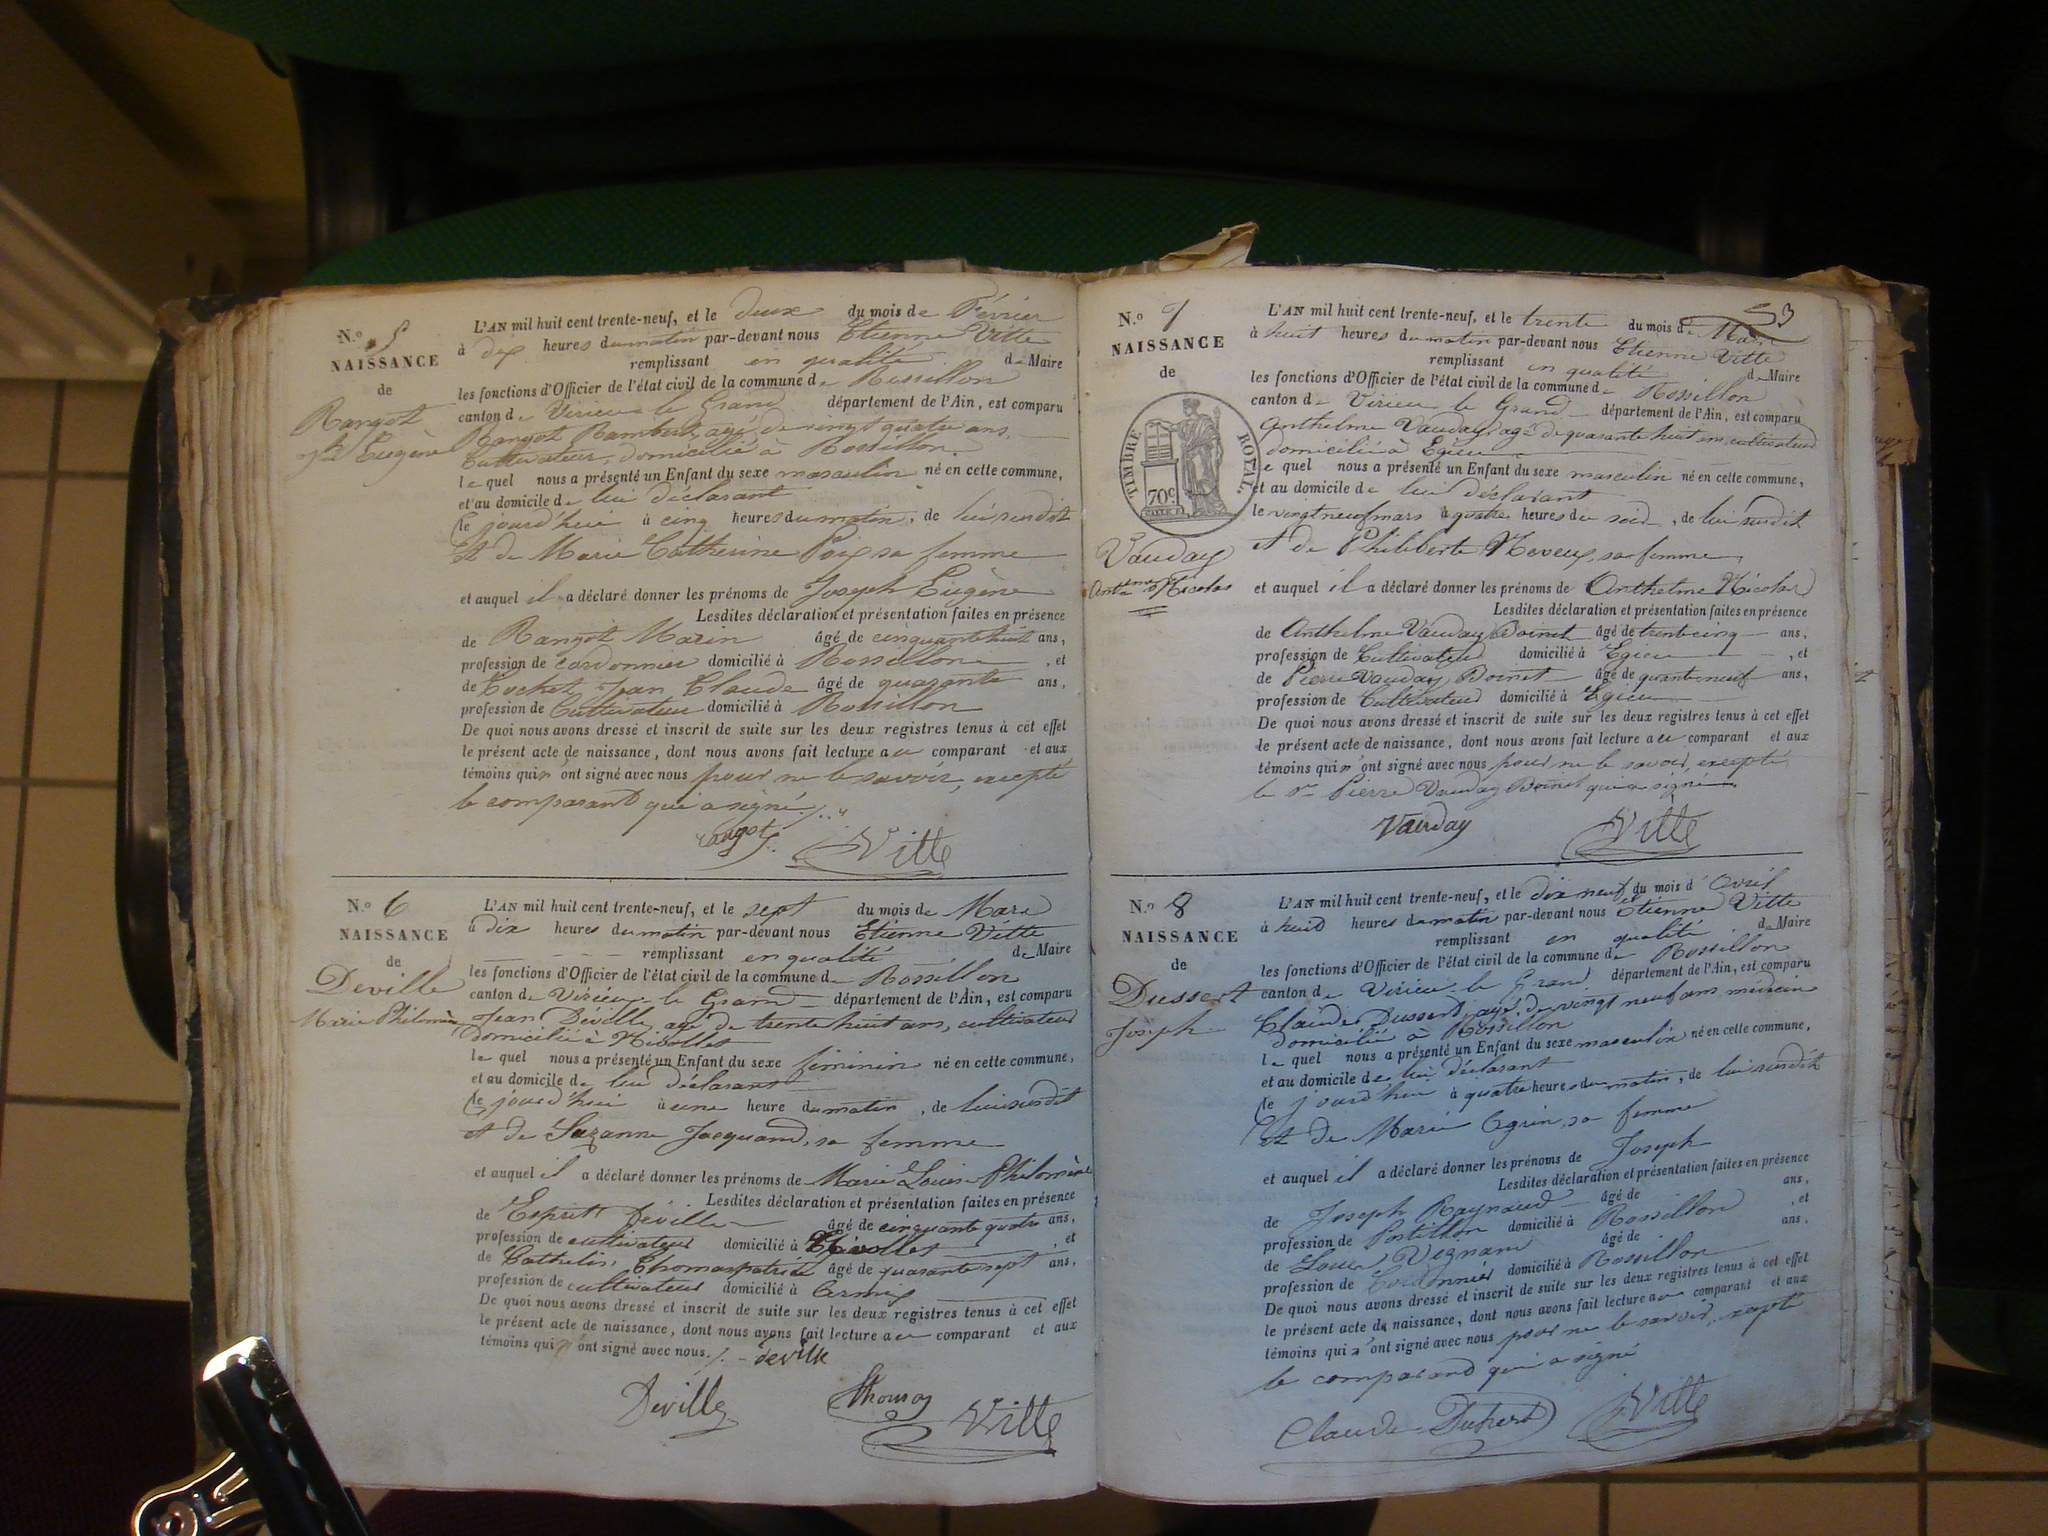 N.o 5
NAISSANCE
de
Rangot
Jh Eugène
L'AN mil huit cent trente-neuf, et le deux du mois de Février
à dix heures du matin par-devant nous Etienne Vitte
remplissant en qualité de Maire
les fonctions d'Officier de l'état civil de la commune de Rossillon
canton de Virieu le Grand département de l'Ain, est comparu
Rangot Rambert, agé de vingt quatre ans,
Cultivateur, domicilié à Rossillon
le quel nous a présenté un Enfant du sexe masculin né en cette commune,
et au domicile de lui déclarant
le jourd'hui à cinq heures du matin, de lui susdit
et de Marie Catherine sa femme
et auquel il a déclaré donner les prénoms de Joseph Eugène
Lesdites déclaration et présentation faites en présence
de Rangot Marin âgé de cinquante huit ans,
profession de cordonnier domicilié à Rossillon, et
de Cochet Jean Claude âgé de quarante ans,
profession de Cultivateur domicilié à Rossillon
De quoi nous avons dressé et inscrit de suite sur les deux registres tenus à cet effet
le présent acte de naissance, dont nous avons fait lecture a ce comparant et aux
témoins qui n'ont signé avec nous pour ne le savoir, excepté
le comparant qui a signé
Rangot Vitte
N.o 6
NAISSANCE
de
Deville
Marie Philomène
L'AN mil huit cent trente-neuf, et le sept du mois de Mars
à dix heures du matin par-devant nous Etienne Vitte
remplissant en qualité de Maire
les fonctions d'Officier de l'état civil de la commune de Rossillon
canton de Virieu le Grand département de l'Ain, est comparu
Jean Déville, agé de trente huit ans, cultivateur
domicilié à Nivollet
le quel nous a présenté un Enfant du sexe féminin né en cette commune,
et au domicile de lui déclarant
le jourd'hui à une heure du matin, de lui susdit
et de Suzanne Jacquand, sa femme
et auquel il a déclaré donner les prénoms de Marie Louise Philomène
Lesdites déclaration et présentation faites en présence
de Esprit Déville âgé de cinquante quatre ans,
profession de cultivateur domicilié à Nivollet, et
de Cathelin, Thomas patrice âgé de quarante sept ans,
profession de cultivateur domicilié à
De quoi nous avons dressé et inscrit de suite sur les deux registres tenus à cet effet
le présent acte de naissance, dont nous avons fait lecture a ce comparant et aux
témoins qui ont signé avec nous. deville
Déville Vitte
53
N.o 7
NAISSANCE
de
TIMBRE ROYAL.
70c
Vauday
Anthme Nicolas
L'AN mil huit cent trente-neuf, et le trente du mois de Mars
à huit heures du matin par-devant nous Etienne Vitte
remplissant en qualité de Maire
les fonctions d'Officier de l'état civil de la commune de Rossillon
canton de Virieu le Grand département de l'Ain, est comparu
Anthelme Vauday agé de quarante huit ans, cultivateur
domicilié à Egieu
le quel nous a présenté un Enfant du sexe masculin né en cette commune,
et au domicile de lui déclarant
le vingt neuf mars à quatre heures du soir, de lui susdit
et de Philiberte Neveux, sa femme
et auquel il a déclaré donner les prénoms de Anthelme Nicolas
Lesdites déclaration et présentation faites en présence
de Anthelme Vauday Boinet âgé de trente cinq ans,
profession de Cultivateur domicilié à Egieu, et
de Pierre Vauday Boinet âgé de quarante neuf ans,
profession de Cultivateur domicilié à Egieu
De quoi nous avons dressé et inscrit de suite sur les deux registres tenus à cet effet
le présent acte de naissance, dont nous avons fait lecture a ce comparant et aux
témoins qui n'ont signé avec nous pour ne le savoir, excepté
le sr Pierre Vauday Boinet qui a signé
Vauday Vitte
N.o 8
NAISSANCE
de
Dussert
Joseph
L'AN mil huit cent trente-neuf, et le dix neuf du mois d'Avril
à huit heures du matin par-devant nous Etienne Vitte
remplissant en qualité de Maire
les fonctions d'Officier de l'état civil de la commune de Rossillon
canton de Virieu le Grand département de l'Ain, est comparu
Claude Dussert, agé de vingt neuf ans médecin
domicilié à Rossillon
le quel nous a présenté un Enfant du sexe masculin né en cette commune,
et au domicile de lui déclarant
le jourd'hui à quatre heures du matin, de lui susdit
et de Marie sa femme
et auquel il a déclaré donner les prénoms de Joseph
Lesdites déclaration et présentation faites en présence
de Joseph Raynaud âgé de ans,
profession de Postillon domicilié à Rossillon, et
de Louis âgé de ans,
profession de Cordonnier domicilié à Rossillon
De quoi nous avons dressé et inscrit de suite sur les deux registres tenus à cet effet
le présent acte de naissance, dont nous avons fait lecture a ce comparant et aux
témoins qui n'ont signé avec nous pour ne le savoir, excepté
le comparant qui a signé
Claude Dussert Vitte